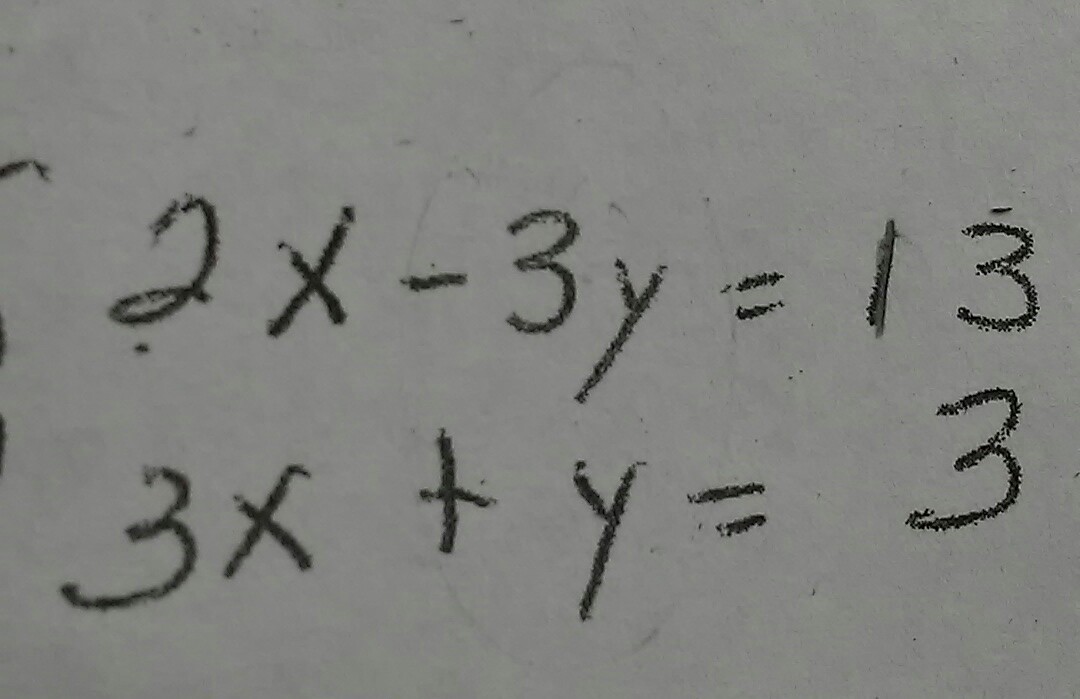 2x - 3y = 13
3x + y = 3